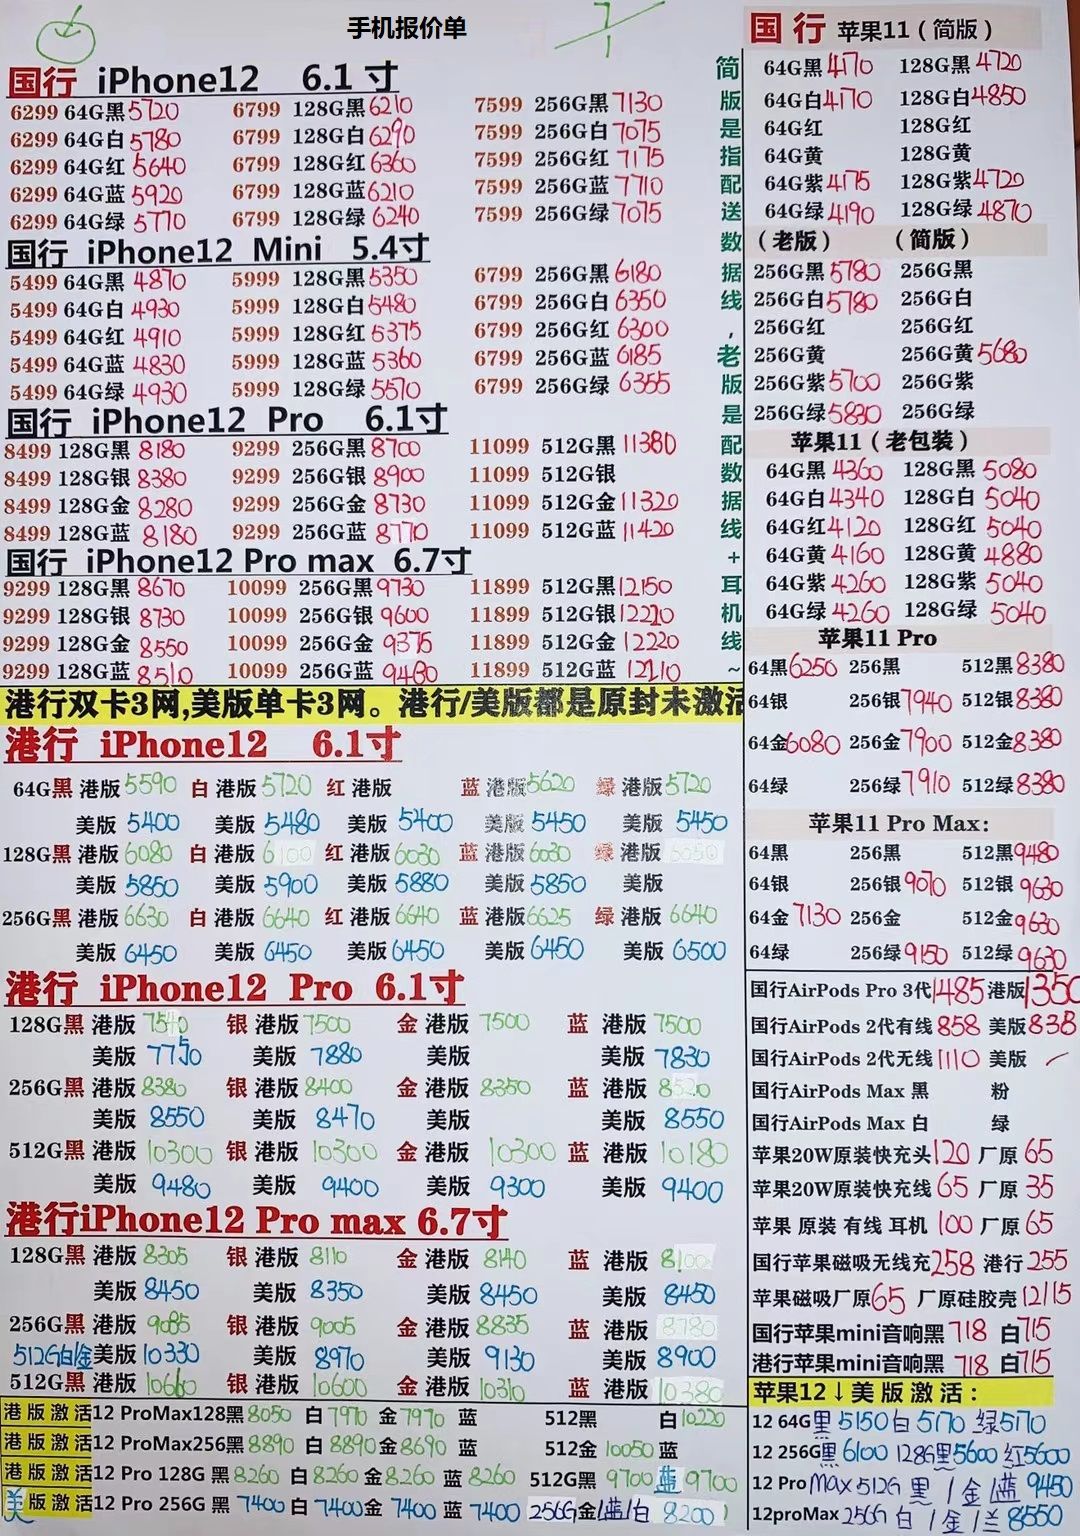 手机报价单
国行 iPhone12 6.1寸
6299 64G黑 5720 6799 128G黑 6210 7599 256G黑 7130
6299 64G白 5780 6799 128G白 6290 7599 256G白 7075
6299 64G红 5640 6799 128G红 6360 7599 256G红 7175
6299 64G蓝 5920 6799 128G蓝 6210 7599 256G蓝 7710
6299 64G绿 5770 6799 128G绿 6240 7599 256G绿 7075
国行 iPhone12 Mini 5.4寸
5499 64G黑 4870 5999 128G黑 5350 6799 256G黑 6180
5499 64G白 4930 5999 128G白 5480 6799 256G白 6350
5499 64G红 4910 5999 128G红 5375 6799 256G红 6300
5499 64G蓝 4830 5999 128G蓝 5360 6799 256G蓝 6185
5499 64G绿 4930 5999 128G绿 5570 6799 256G绿 6355
国行 iPhone12 Pro 6.1寸
8499 128G黑 8180 9299 256G黑 8700 11099 512G黑 11380
8499 128G银 8380 9299 256G银 8900 11099 512G银
8499 128G金 8280 9299 256G金 8730 11099 512G金 11320
8499 128G蓝 8180 9299 256G蓝 8770 11099 512G蓝 11420
国行 iPhone12 Pro max 6.7寸
9299 128G黑 8670 10099 256G黑 9730 11899 512G黑 12150
9299 128G银 8730 10099 256G银 9600 11899 512G银 12210
9299 128G金 8550 10099 256G金 9375 11899 512G金 12220
9299 128G蓝 8510 10099 256G蓝 9480 11899 512G蓝 12110
简版是指配送数据线，老版是配数据线+耳机线~
港行双卡3网,美版单卡3网。港行/美版都是原封未激活
港行 iPhone12 6.1寸
64G黑 港版 5590 白 港版 5720 红 港版 蓝 港版 5620 绿 港版 5720
美版 5400 美版 5480 美版 5400 美版 5450 美版 5450
128G黑 港版 6080 白 港版 6100 红 港版 6030 蓝 港版 6030 绿 港版
美版 5850 美版 5900 美版 5880 美版 5850 美版
256G黑 港版 6630 白 港版 6640 红 港版 6640 蓝 港版 6625 绿 港版 6640
美版 6450 美版 6450 美版 6450 美版 6450 美版 6500
港行 iPhone12 Pro 6.1寸
128G黑 港版 银 港版 7500 金 港版 7500 蓝 港版 7500
美版 7750 美版 7880 美版 美版 7830
256G黑 港版 8380 银 港版 8400 金 港版 8350 蓝 港版
美版 8550 美版 8470 美版 美版 8550
512G黑 港版 10300 银 港版 10300 金 港版 10300 蓝 港版 10180
美版 9480 美版 9400 美版 9300 美版 9400
港行iPhone12 Pro max 6.7寸
128G黑 港版 8305 银 港版 8110 金 港版 8140 蓝 港版 8100
美版 8450 美版 8350 美版 8450 美版 8450
256G黑 港版 9085 银 港版 9005 金 港版 8835 蓝 港版 8780
512G白/金 美版 10330 美版 8970 美版 9130 美版 8900
512G黑 港版 10660 银 港版 10600 金 港版 10310 蓝 港版 10380
港版激活 12 ProMax128黑 8050 白 7970 金 7970 蓝 512黑 白 10220
港版激活 12 ProMax256黑 8890 白 8890 金 8690 蓝 512金 10050 蓝
港版激活 12 Pro 128G 黑 8260 白 8260 金 8260 蓝 8260 512G黑 9700 蓝 9700
美版激活 12 Pro 256G 黑 7400 白 7400 金 7400 蓝 7400 256G 金/蓝/白 8200
国行 苹果11（简版）
64G黑 4170 128G黑 4720
64G白 4170 128G白 4850
64G红 128G红
64G黄 128G黄
64G紫 4175 128G紫 4720
64G绿 4190 128G绿 4870
（老版） （简版）
256G黑 5780 256G黑
256G白 5780 256G白
256G红 256G红
256G黄 256G黄 5680
256G紫 5700 256G紫
256G绿 5830 256G绿
苹果11（老包装）
64G黑 4360 128G黑 5080
64G白 4340 128G白 5040
64G红 4120 128G红 5040
64G黄 4160 128G黄 4880
64G紫 4260 128G紫 5040
64G绿 4260 128G绿 5040
苹果11 Pro
64黑 6250 256黑 512黑 8380
64银 256银 7940 512银 8380
64金 6080 256金 7900 512金 8380
64绿 256绿 7910 512绿 8380
苹果11 Pro Max：
64黑 256黑 512黑 9480
64银 256银 9070 512银 9630
64金 7130 256金 512金 9630
64绿 256绿 9150 512绿 9630
国行AirPods Pro 3代 1485 港版 1350
国行AirPods 2代有线 858 美版 838
国行AirPods 2代无线 1110 美版
国行AirPods Max 黑 粉
国行AirPods Max 白 绿
苹果20W原装快充头 120 厂原 65
苹果20W原装快充线 65 厂原 35
苹果 原装 有线 耳机 100 厂原 65
国行苹果磁吸无线充 258 港行 255
苹果磁吸厂原 65 厂原硅胶壳 12/15
国行苹果mini音响黑 718 白 715
港行苹果mini音响黑 718 白 715
苹果12↓美版激活：
12 64G 黑 5150 白 5170 绿 5170
12 256G 黑 6100 128G黑 5600 红 5600
12 Pro max 512G 黑/金/蓝 9450
12proMax 256G 白/金/兰 8550